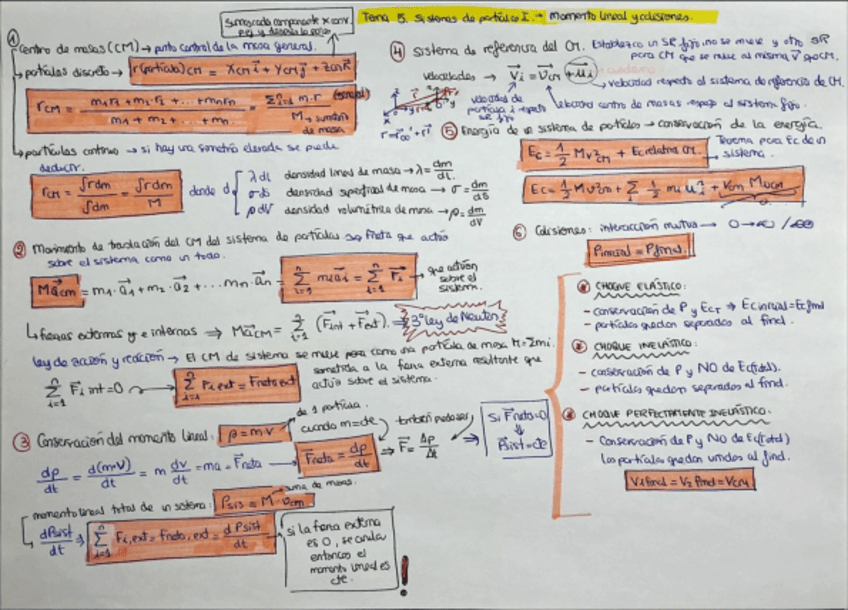 Tema 5. Sistemas de partículas I. → momento lineal y colisiones.
①
Centro de masas (CM) → punto central de la masa general.
→ partículas discreto → r(partícula)CM = XCM i + YCM j + ZCM K
rCM = m1r1 + m2·r2 + ... + mnrn / m1 + m2 + ... + mn. = Σ m·r / M → sumatorio de masa
→ partículas continuo → si hay una simetría elevada se puede
deducir.
rCM = ∫rdm / ∫dm = ∫rdm / M donde d
λ dl densidad lineal de masa → λ = dm/dL
σ ds densidad superficial de masa → σ = dm/dS
ρ dV densidad volumétrica de masa → ρ = dm/dV
② Movimiento de traslación del CM del sistema de partículas → Fneta que actúa
sobre el sistema como un todo.
Macm = m1·a1 + m2·a2 + ... mn·an = Σ miai = Σ Fi → que actúan sobre el sistema.
↳ fuerzas externas y e internas ⇒ MaCM = Σ (Fint + Fext). ⇒ 3ª ley de Newton
ley de acción y reacción → El CM de sistema se mueve como una partícula de masa M = Σmi.
sometida a la fuerza externa resultante que
actúa sobre el sistema.
Σ Fi int = 0 → Σ Fi ext = Fneta ext
③ Conservación del momento lineal: p = m·v
de 1 partícula.
cuando m = cte
dp/dt = d(m·v)/dt = m dv/dt = ma = Fneta → Fneta = dp/dt ⇒ F = Δp/Δt ⇒ Si Fneta = 0 ⇓ Psist = cte
también puede ser
momento lineal total de un sistema: Psis = M·vcm
suma de masas.
dPsist/dt ⇒ Σ Fi,ext = Fneta,ext = dPsist/dt
si la fuerza externa
es 0, se anula
entonces el
momento lineal es
cte.
!
④ Sistema de referencia del CM. Establezco un SR fijo, no se mueve y otro SR
para CM que se mueve al misma V que CM.
velocidades → Vi = VCM + ui
→ velocidad respecto al sistema de referencia de CM.
velocidad de partícula i respecto SR fijo
velocidad centro de masas respecto al sistema fijo.
⑤ Energía de un sistema de partículas → conservación de la energía.
Ec = 1/2 M v²CM + Ec relativa CM. Teorema para Ec de un
sistema.
Ec = 1/2 M v²cm + Σ 1/2 mi u²i + Vcm M ucm
0
⑥ Colisiones: interacción mutua →
Pinicial = Pfinal.
CHOQUE ELÁSTICO:
- conservación de P y EcT ⇒ Ec inicial = Ec final
- partículas quedan separadas al final.
CHOQUE INELÁSTICO:
- conservación de P y NO de Ec(total).
- partículas quedan separadas al final.
CHOQUE PERFECTAMENTE INELÁSTICO:
- Conservación de P y NO de Ec(total)
Las partículas quedan unidas al final.
V1 final = V2 final = VCM